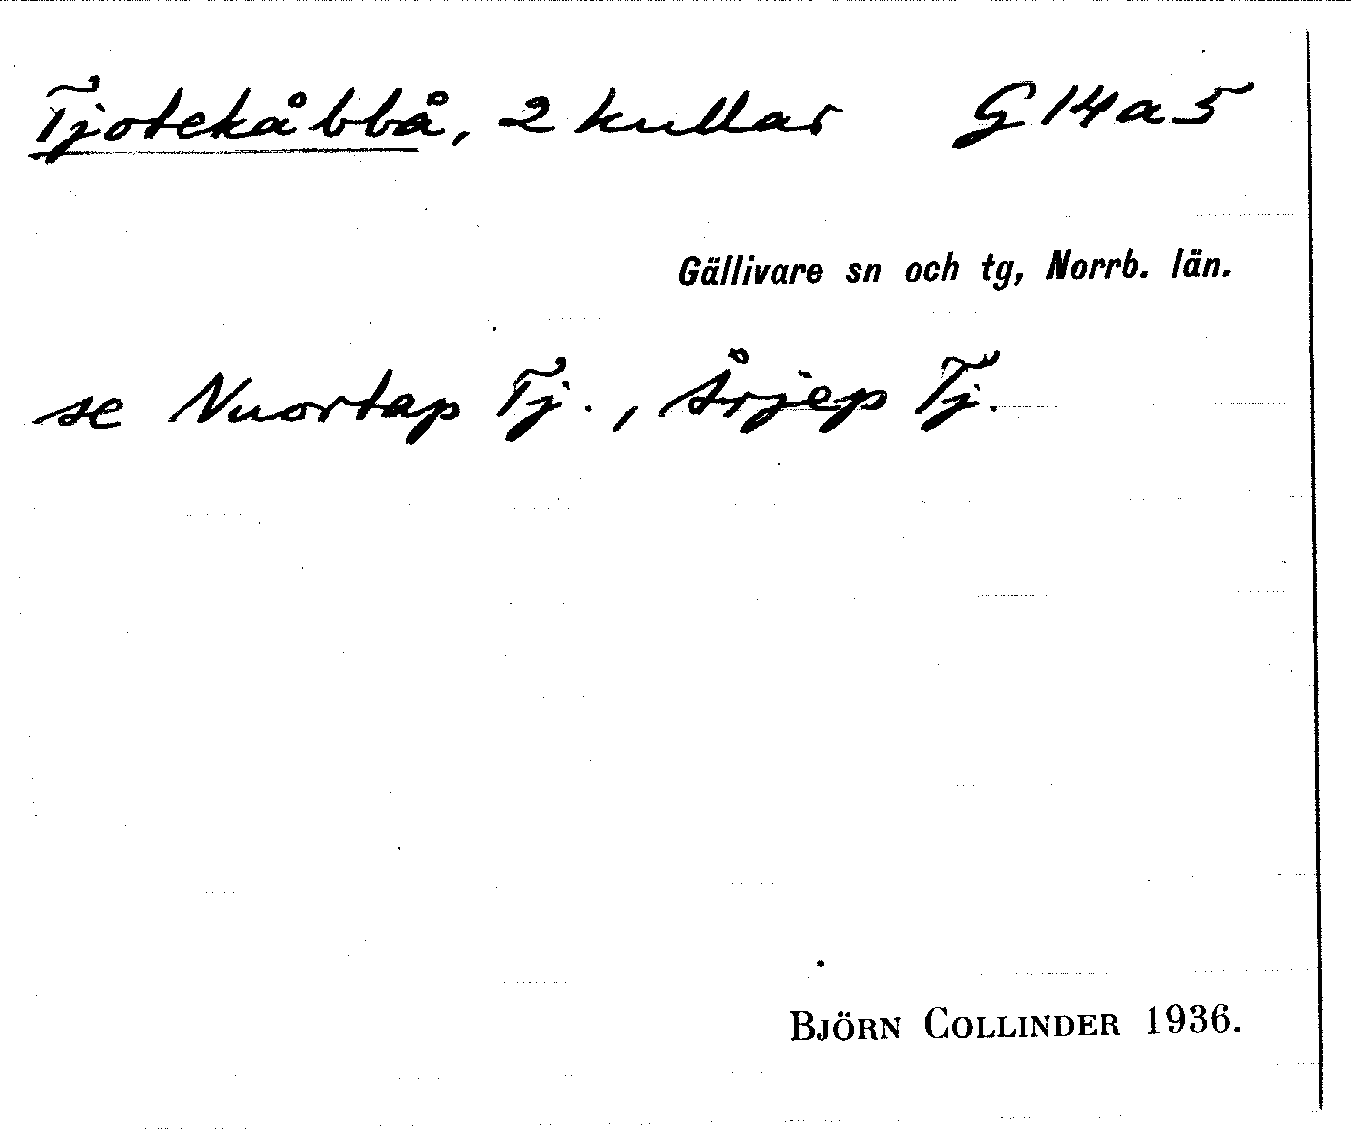 Tjotekåbbå, 2 kullar G 14 a 5
Gällivare sn och tg, Norrb. län.
se Nuortap Tj., Årjep Tj.
BJÖRN COLLINDER 1936.